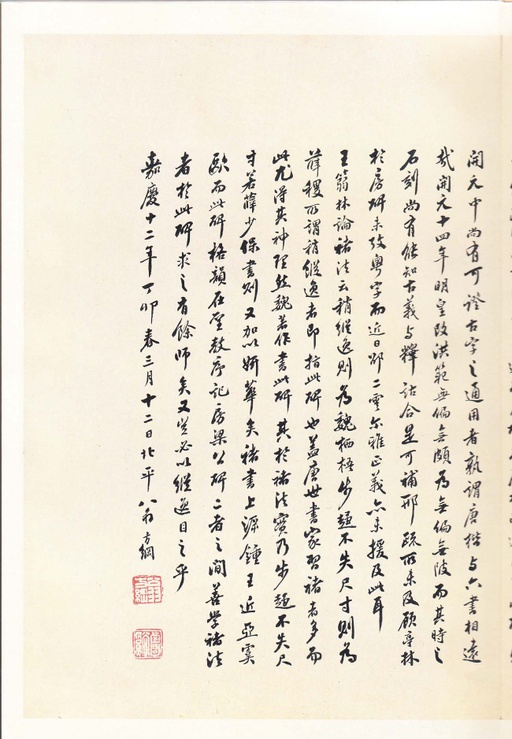 開元中尚有可證古字之通用者孰謂唐楷与六書相遠
哉開元十四年明皇改洪範無偏無頗為無偏無陂而其時之
石刻尚有能知古義与釋詁合是可補邢疏所未及顧亭林
於房碑未攷粤字而近日邵二雲尔雅正義亦未援及此耳
王篛林論褚法云稍縱逸則為魏栖梧步趨不失尺寸則為
薛稷所謂稍縱逸者即指此碑也蓋唐世書家習褚者多而
此尤得其神理然魏著作書此碑其於褚法實乃步趨不失尺
寸若薛少保書則又加以妍華矣褚書上源鍾王近亞虞
歐而此碑格韻在聖教序記房梁公碑二者之間善學褚法
者於此碑求之有餘師矣又豈必以縱逸目之乎
嘉慶十二年丁卯春三月十二日北平翁方綱